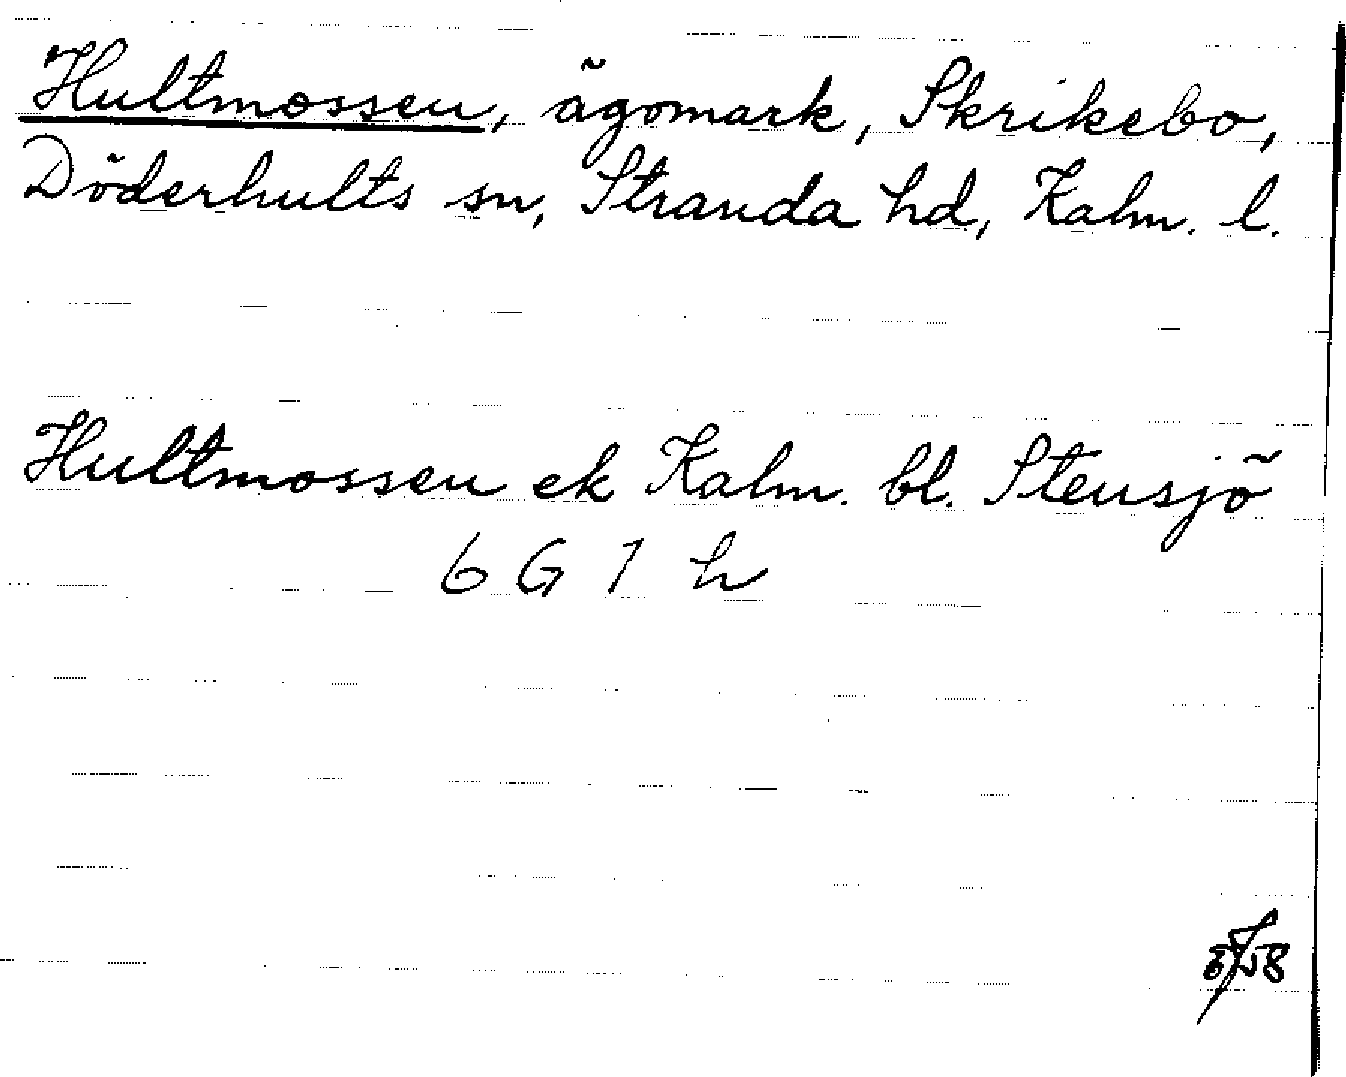 Hultmossen, ägomark, Skrikebo,
Döderhults sn, Stranda hd, Kalm. l.
Hultmossen ek Kalm. bl. Stensjö
6 G 1 h